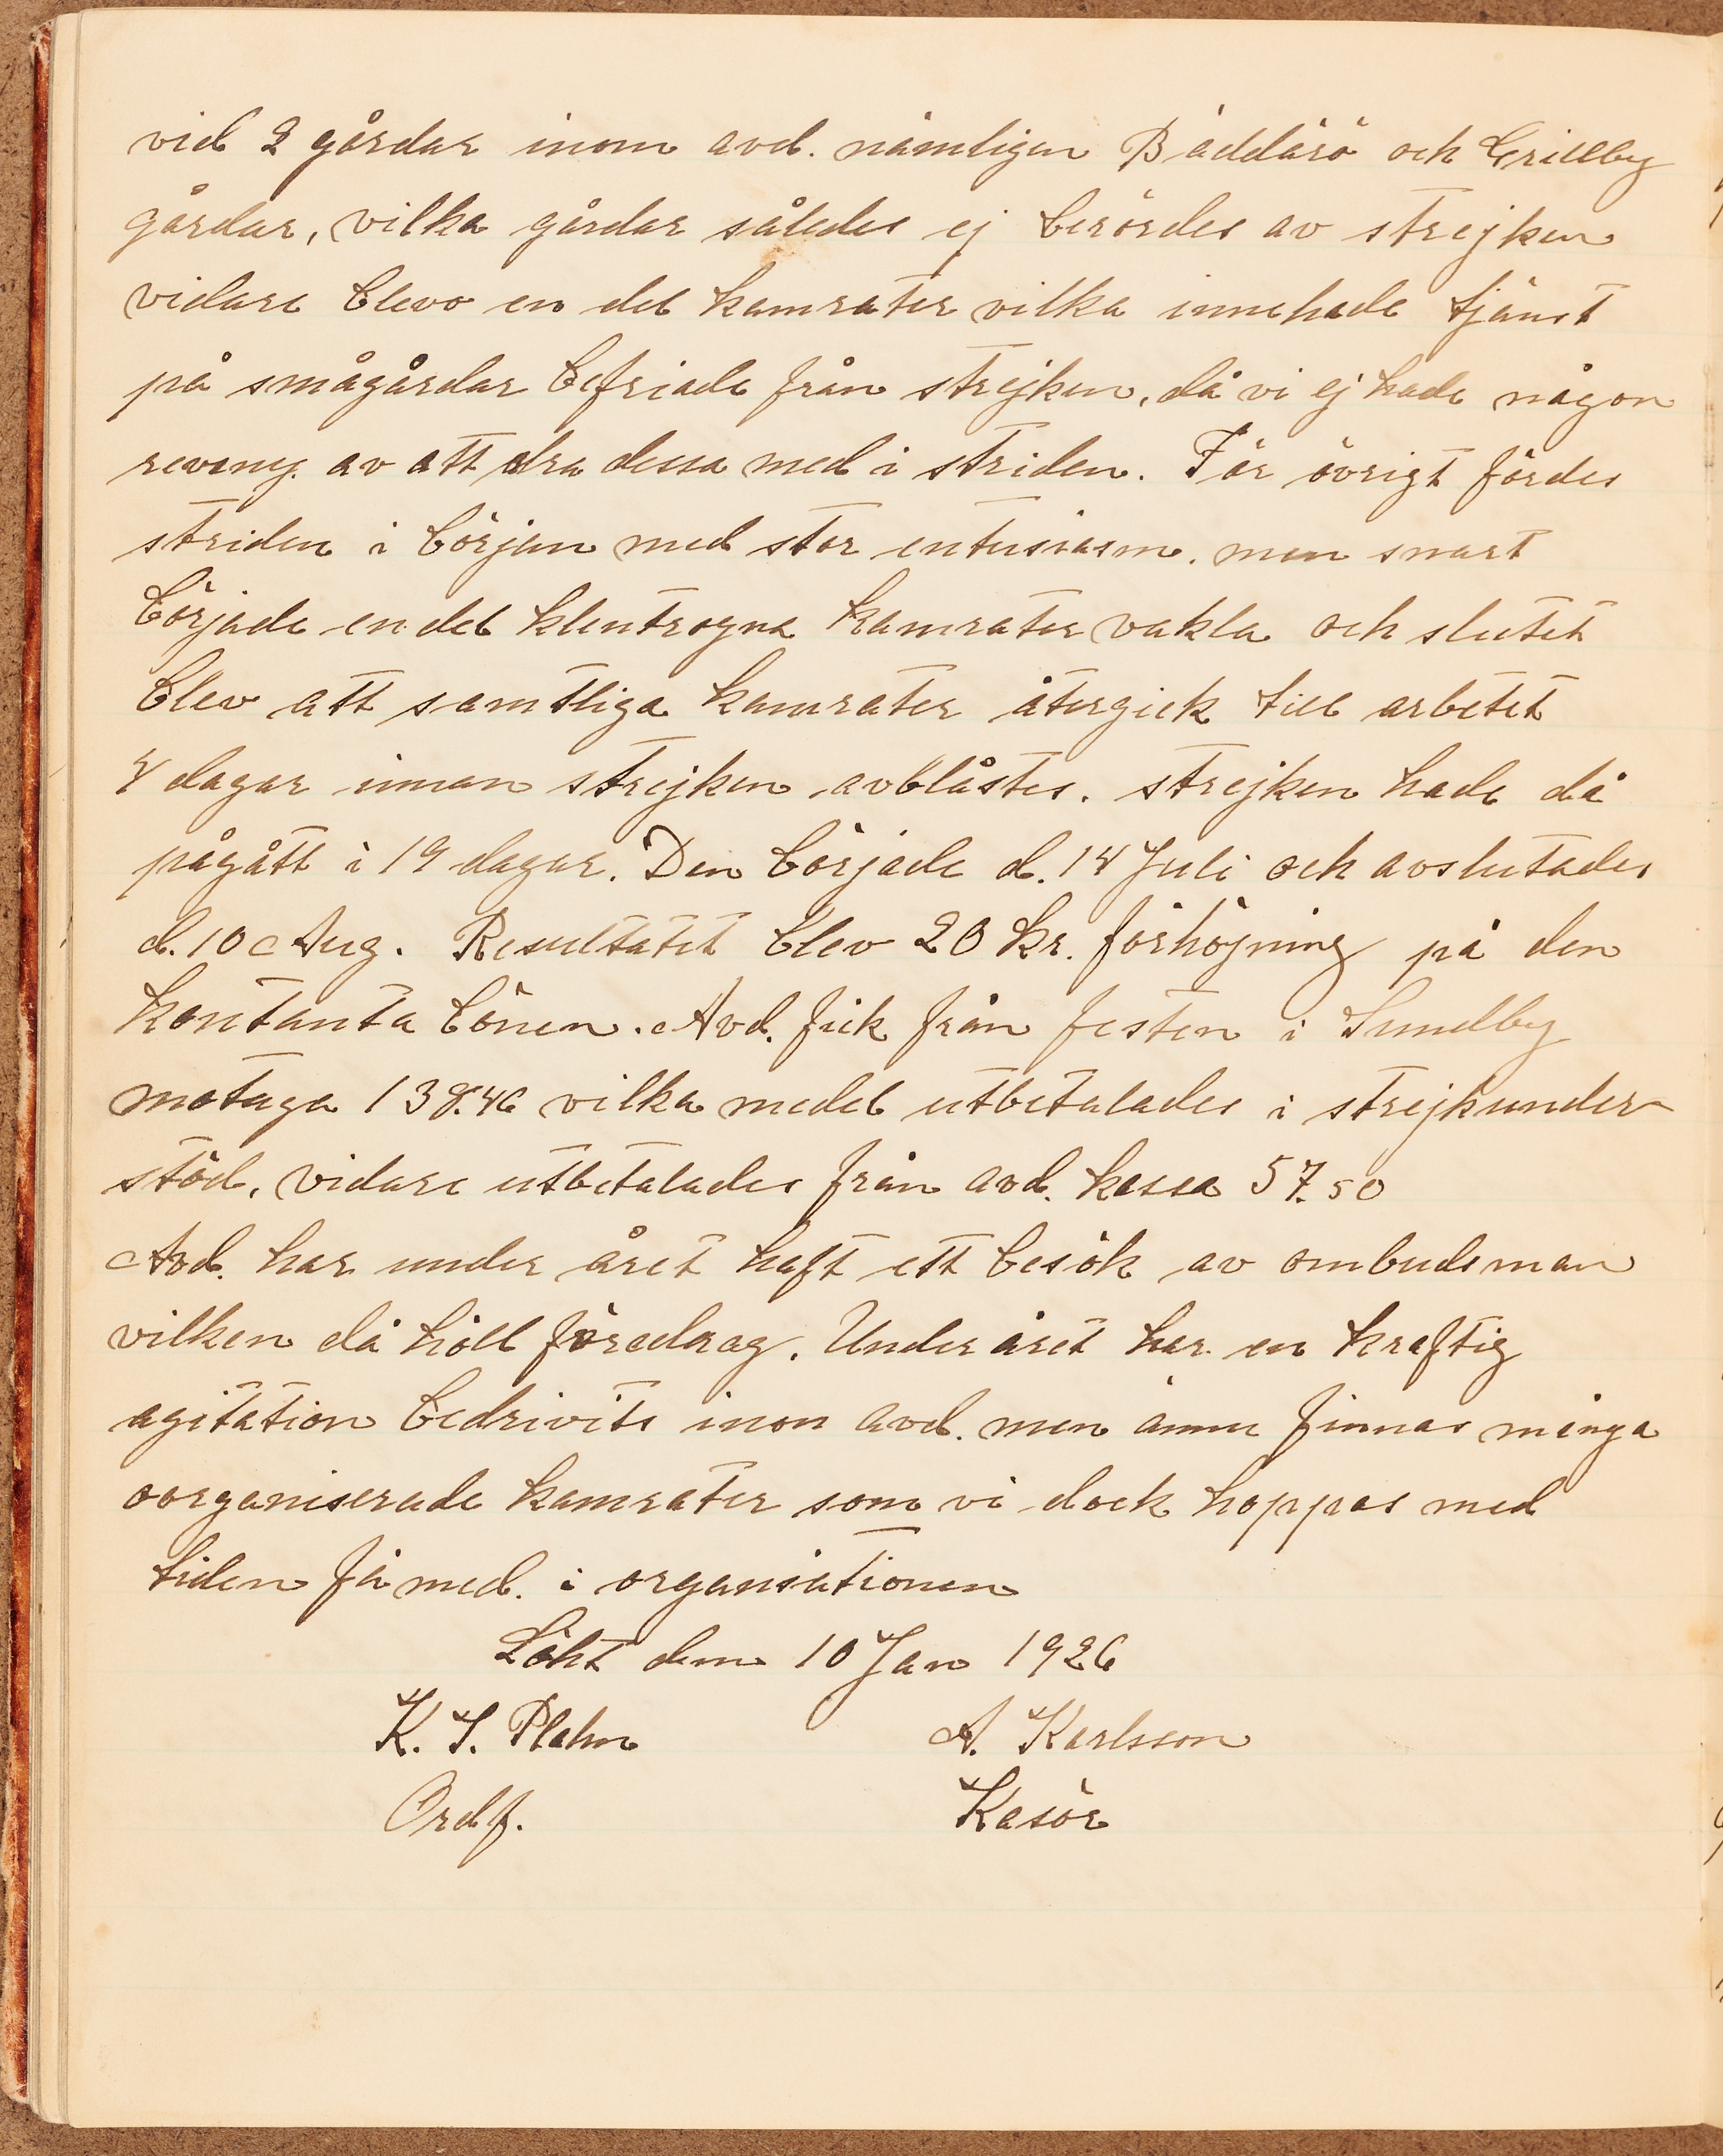 vid 2 gårdar inom avd. nämligen Bäddarö och Grillby
gårdar, vilka gårdar således ej berördes av strejken
vidare blevo en del kamrater vilka innehade tjänst
på smågårdar befriade från strejken, då vi ej hade någon
av att dra dessa med i striden. För övrigt fördes
striden i början med stor entusiasm. men snart
började en del klentrogna kamrater vakla och slutet
blev att samtliga kamrater återgick till arbetet
4 dagar innan strejken avblåstes. strejken hade då
pågått i 19 dagar. Den började d. 14 Juli och avslutades
d. 10 Aug. Resultatet blev 20 kr. förhöjning på den
kontanta lönen. Avd. fick från festen i Sundby
motaga 138.46 vilka medel utbetalades i strejkunder-
stöd, vidare utbetalades från avd. kassa 57.50
Avd. har under året haft ett besök av ombudsman
vilken då höll föredrag. Under året har en kraftig
agitation bedrivits inon avd. men ännu finnas många
oorganiserade kamrater som vi dock hoppas med
tiden få med. i organisationen
Löht den 10 Jan 1926
K. J. Plahn A. Karlsson
Ordf. Kasör